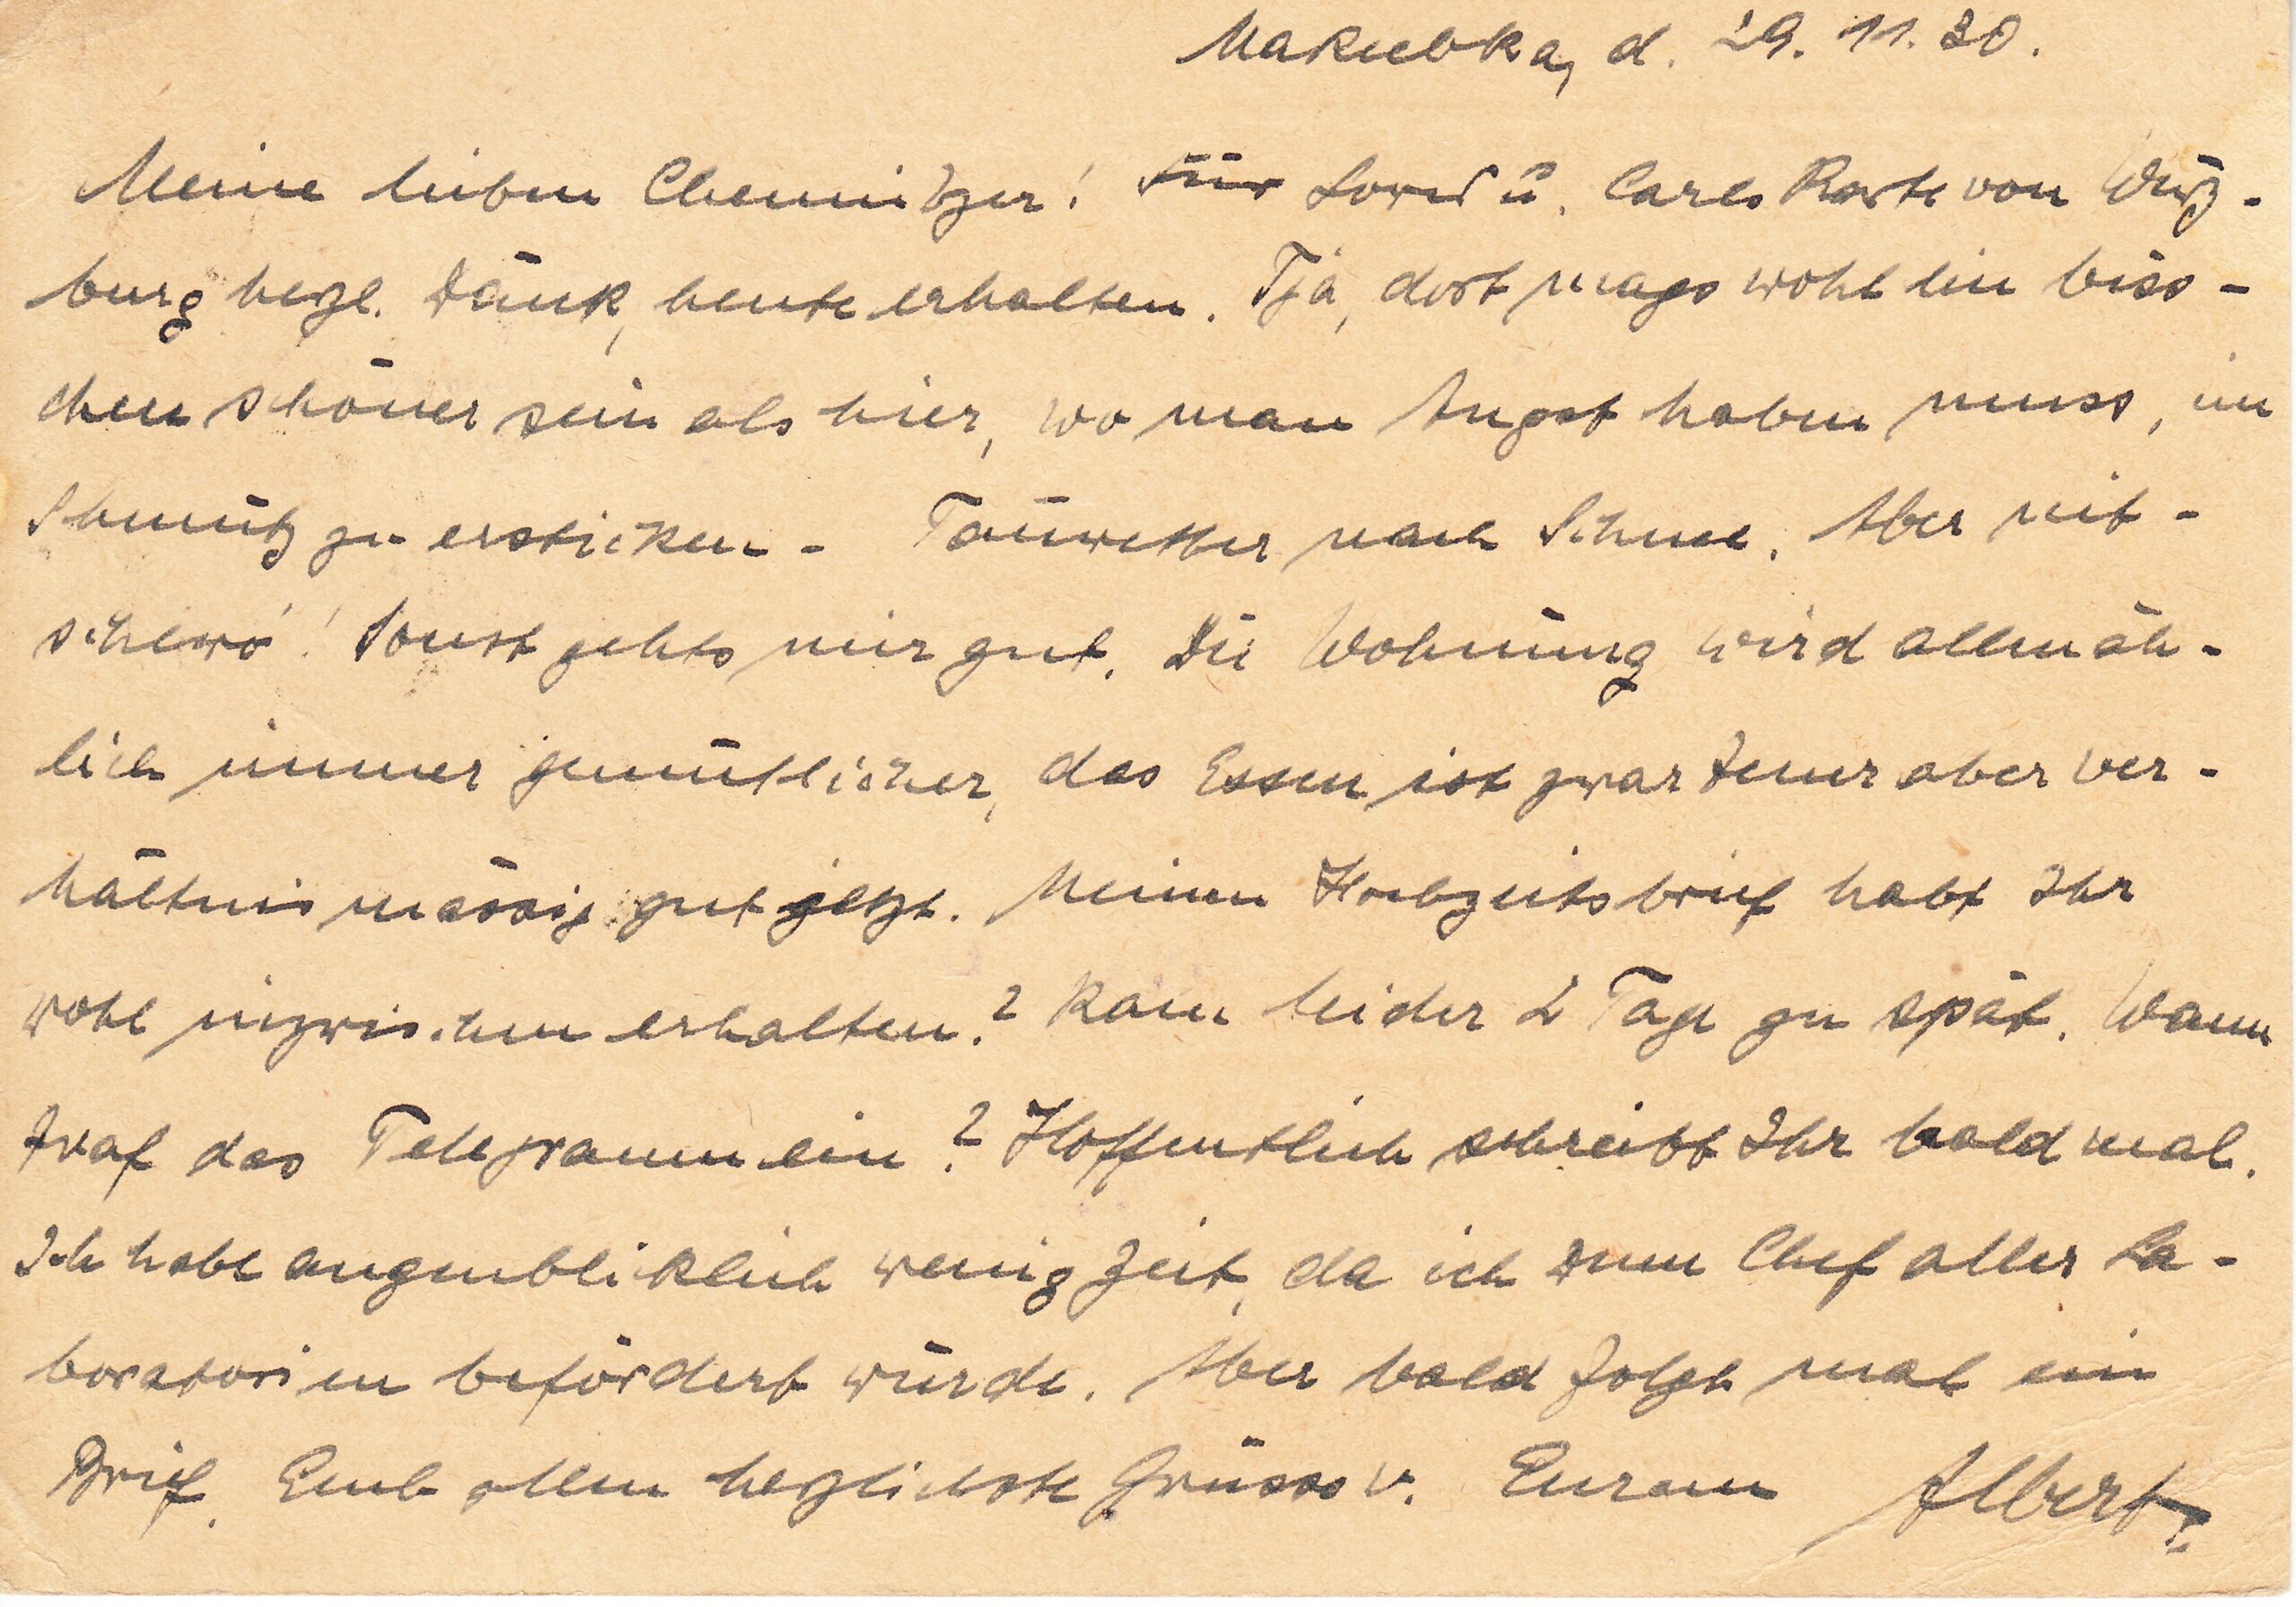 Makeebka, d. 29. 11. 30.
Meine lieben Chemnitzer! Für u. Carls Karte von Würz-
burg herzl. Dank, heute erhalten. Tja, dort mags wohl ein biss-
chen schöner sein als hier, wo man Angst haben muss, im
Schmutz zu ersticken - Tauwetter nach Schnee. Aber nit-
schewo! Sonst gehts mir gut. Die Wohnung wird allmäh-
lich immer gemütlicher, das Essen ist zwar teuer aber ver-
hältnismässig gut jetzt. Meinen Hochzeitsbrief habt Ihr
wohl inzwischen erhalten? Kam leider 2 Tage zu spät. Wann
traf das Telegramm ein? Hoffentlich schreibt Ihr bald mal.
Ich habe augenbliklich wenig Zeit, da ich zum Chef aller La-
boratorien befördert wurde. Aber bald folgt mal ein
Brief. Euch allen herzlichste Grüsse v. Eurem Albert.